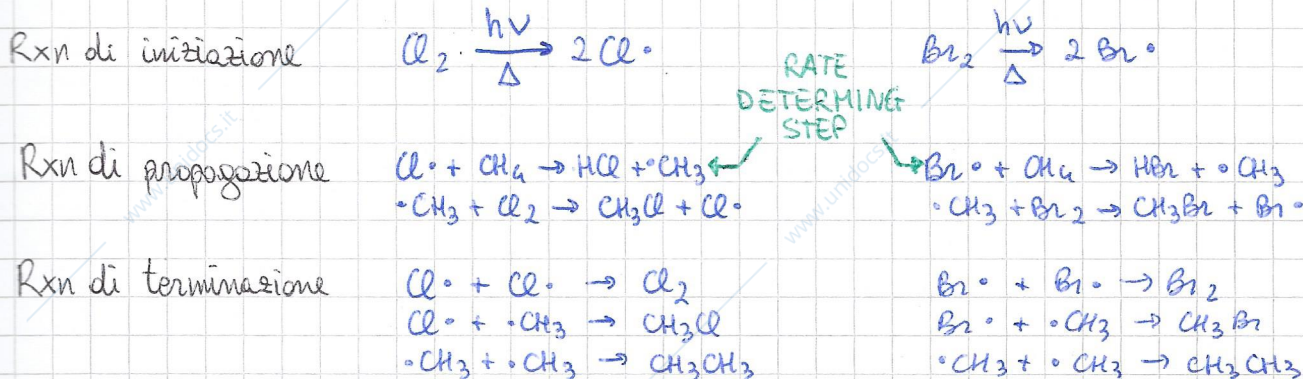 Rxn di iniziazione Cl₂ · hν/Δ → 2 Cl• Br₂ hν/Δ → 2 Br•
RATE
DETERMING
STEP
Rxn di propagazione Cl• + CH₄ → HCl + •CH₃ Br• + CH₄ → HBr + •CH₃
•CH₃ + Cl₂ → CH₃Cl + Cl• •CH₃ + Br₂ → CH₃Br + Br•
Rxn di terminazione Cl• + Cl• → Cl₂ Br• + Br• → Br₂
Cl• + •CH₃ → CH₃Cl Br• + •CH₃ → CH₃Br
•CH₃ + •CH₃ → CH₃CH₃ •CH₃ + •CH₃ → CH₃CH₃
www.unidocs.it
www.unidocs.it